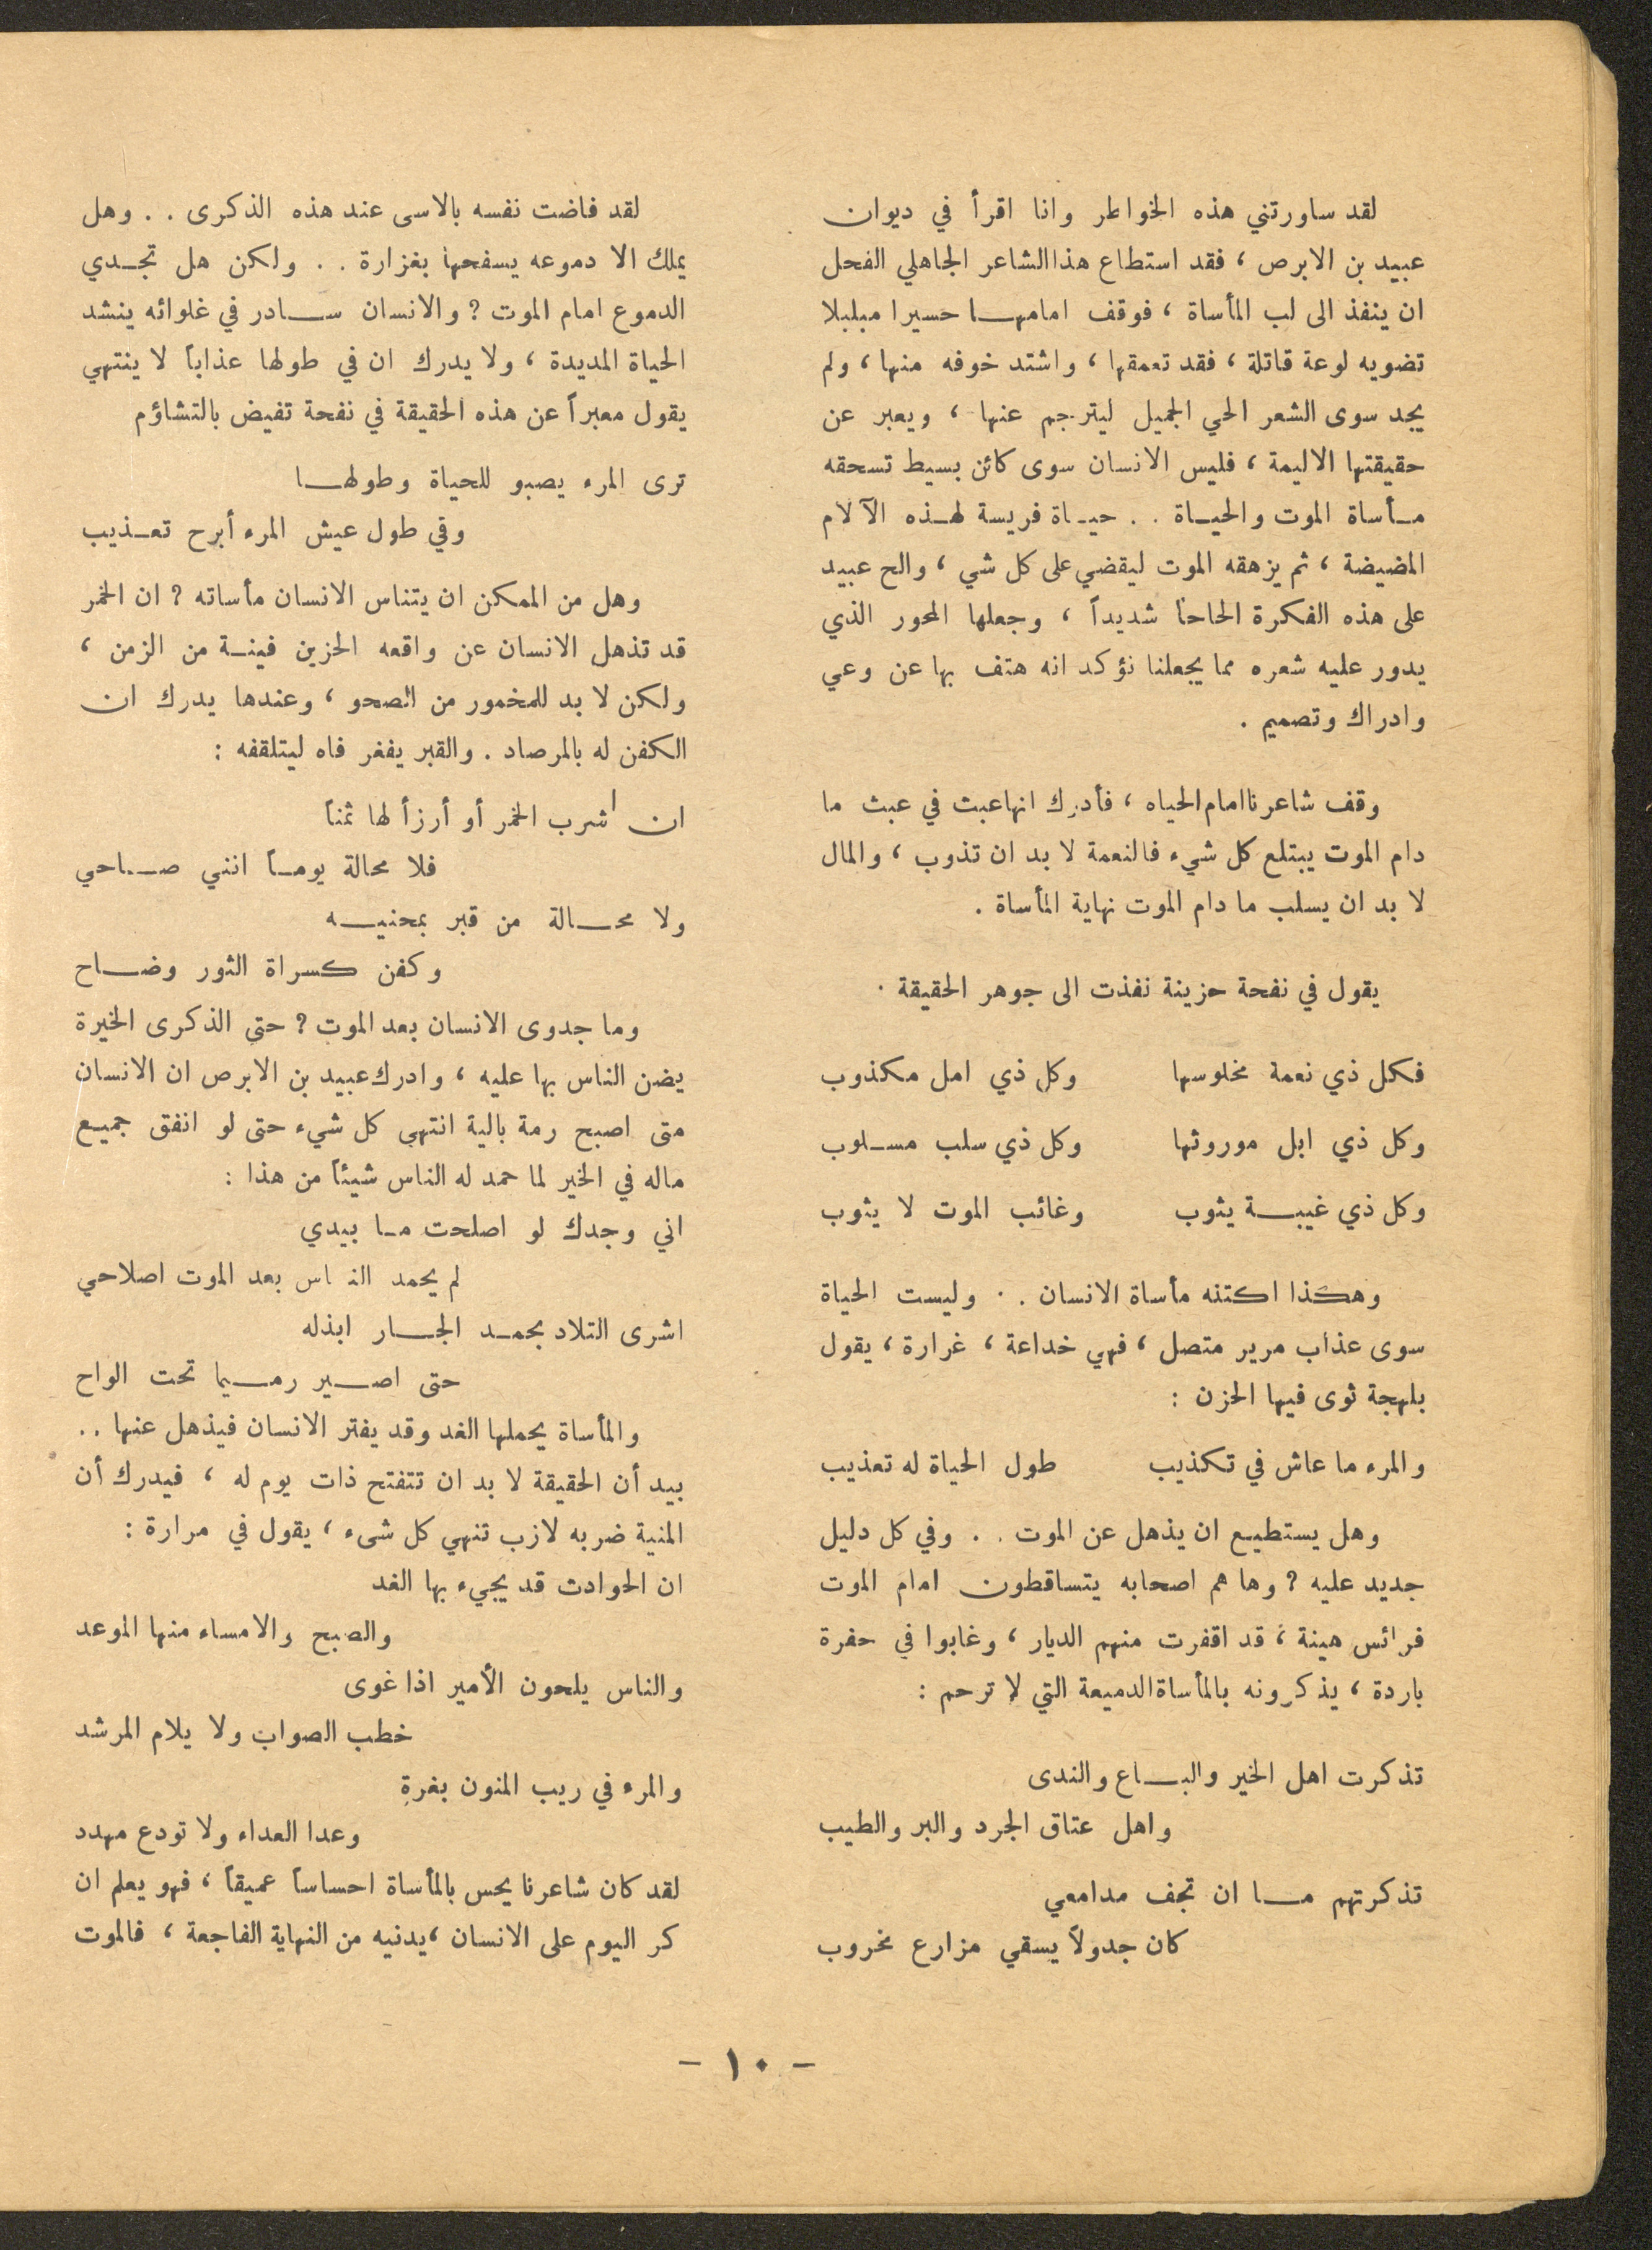 لقد ساورتني هذه الخواطر وانا اقرأ في ديوان
عبيد بن الابرص ، فقد استطاع هذا الشاعر الجاهلي الفحل
ان ينفذ الى لب المأساة ، فوقف امامهـا حسيرا مبلبلا
تضويه لوعة قاتلة ، فقد تعمقها ، واشتد خوفه منها ، ولم
يجد سوى الشعر الحي الجميل ليترجم عنها ، ويعبر عن
حقيقتها الاليمة ، فليس الانسان سوى كائن بسيط تسحقه
مـأساة الموت والحيـاة . . حيـاة فريسة لهـذه الآلام
المضيضة ، ثم يزهقه الموت ليقضي على كل شي ، والح عبيد
على هذه الفكرة الحاحاً شديداً ، وجعلها المحور الذي
يدور عليه شعره مما يجعلنا نؤكد انه هتف بها عن وعي
وادراك وتصميم .
وقف شاعرنا امام الحياه ، فأدرك انها عبث في عبث ما
دام الموت يبتلع كل شيء فالنعمة لا بد ان تذوب ، والمال
لا بد ان يسلب ما دام الموت نهاية المأساة .
يقول في نفحة حزينة نفذت الى جوهر الحقيقة .
فكل ذي نعمة مخلوسها وكل ذي امل مكذوب
وكل ذي ابل موروثها وكل ذي سلب مسـلوب
وكل ذي غيبـة يثوب وغائب الموت لا يثوب
وهكذا اكتنه مأساة الانسان . . وليست الحياة
سوى عذاب مرير متصل ، فهي خداعة ، غرارة ، يقول
بلهجة ثوى فيها الحزن :
والمرء ما عاش في تكذيب طول الحياة له تعذيب
وهل يستطيـع ان يذهل عن الموت . . وفي كل دليل
جديد عليه ? وها هم اصحابه يتساقطون امام الموت
فرائس هينة ، قد اقفرت منهم الديار ، وغابوا في حفرة
باردة ، يذكرونه بالمأساة الدميعة التي لا ترحم :
تذكرت اهل الخير والبـاع والندى
واهل عتاق الجرد والبر والطيب
تذكرتهم مـا ان تجف مدامعي
كان جدولاً يسقي مزارع مخروب
لقد فاضت نفسه بالاسى عند هذه الذكرى . . وهل
يملك الا دموعه يسفحها بغزارة . . ولكن هل تجـدي
الدموع امام الموت ? والانسان سـادر في غلوائه ينشد
الحياة المديدة ، ولا يدرك ان في طولها عذاباً لا ينتهي
يقول معبراً عن هذه الحقيقة في نفحة تفيض بالتشاؤم
ترى المرء يصبو للحياة وطولهـا
وفي طول عيش المرء أبرح تعـذيب
وهل من الممكن ان يتناس الانسان مأساته ? ان الخمر
قد تذهل الانسان عن واقعه الحزين فينـة من الزمن ،
ولكن لا بد للمخمور من الصحو ، وعندها يدرك ان
الكفن له بالمرصاد . والقبر يفغر فاه ليتلقفه :
ان اشرب الخمر أو أرزأ لها ثمناً
فلا محالة يومـاً انني صـاحي
ولا محـالة من قبر بمحنيـه
وكفن كسراة الثور وضـاح
وما جدوى الانسان بعد الموت ? حتى الذكرى الخيرة
يضن الناس بها عليه ، وادرك عبيد بن الابرص ان الانسان
متى اصبح رمة بالية انتهى كل شيء حتى لو انفق جميـع
ماله في الخير لما حمد له الناس شيئاً من هذا :
اني وجدك لو اصلحت مـا بيدي
لم يحمد الناس بعد الموت اصلاحي
اشرى التلاد بحمـد الجـار ابذله
حتى اصـير رمـيما تحت الواح
والمأساة يحملها الغد وقد يفتر الانسان فيذهل عنها ..
بيد أن الحقيقة لا بد ان تتفتح ذات يوم له ، فيدرك أن
المنية ضربه لازب تنهي كل شىء ، يقول في مرارة :
ان الحوادث قد يجيء بها الغد
والصبح والامساء منها الموعد
والناس يلحون الأمير اذا غوى
خطب الصواب ولا يلام المرشد
والمرء في ريب المنون بغرةٍ
وعدا العداء ولا تودع مهدد
لقد كان شاعرنا يحس بالمأساة احساساً عميقاً ، فهو يعلم ان
كر اليوم على الانسان ، يدنيه من النهاية الفاجعة ، فالموت
- ١٠ -